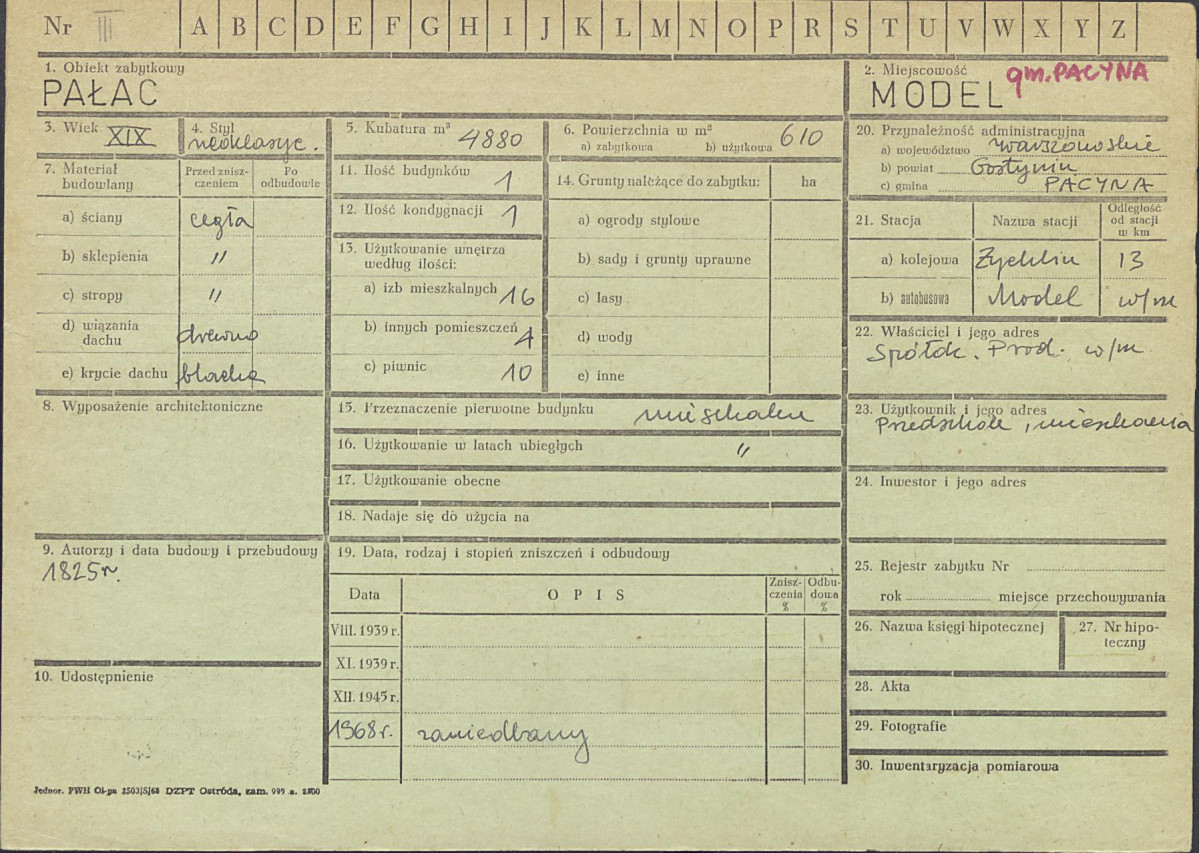 Nr III A B C D E F G H I J K L M N O P R S T U V W X Y Z
1. Obiekt zabytkowy
PAŁAC
2. Miejscowość
MODEL gm. PACYNA
3. Wiek XIX
4. Styl
neoklasyc.
5. Kubatura m³ 4880
6. Powierzchnia w m²
a) zabytkowa b) użytkowa 610
7. Materiał budowlany
Przed zniszczeniem
Po odbudowie
a) ściany cegła
b) sklepienia "
c) stropy "
d) wiązania dachu drewno
e) krycie dachu blacha
8. Wyposażenie architektoniczne
9. Autorzy i data budowy i przebudowy
1825 r.
10. Udostępnienie
11. Ilość budynków 1
12. Ilość kondygnacji 1
13. Użytkowanie wnętrza
według ilości:
a) izb mieszkalnych 16
b) innych pomieszczeń 4
c) piwnic 10
14. Grunty należące do zabytku: ha
a) ogrody stylowe
b) sady i grunty uprawne
c) lasy
d) wody
e) inne
15. Przeznaczenie pierwotne budynku mieszkalne
16. Użytkowanie w latach ubiegłych "
17. Użytkowanie obecne
18. Nadaje się do użycia na
19. Data, rodzaj i stopień zniszczeń i odbudowy
Data OPIS Zniszczenia % Odbudowa %
VIII. 1939 r.
XI. 1939 r.
XII. 1945 r.
1968 r. zaniedbany
20. Przynależność administracyjna
a) województwo warszawskie
b) powiat Gostynin
c) gmina PACYNA
21. Stacja Nazwa stacji Odległość od stacji w km
a) kolejowa Żychlin 13
b) autobusowa Model w/m
22. Właściciel i jego adres
Spółdz. Prod. w/m
23. Użytkownik i jego adres
Przedszkole, mieszkania
24. Inwestor i jego adres
25. Rejestr zabytku Nr
rok miejsce przechowywania
26. Nazwa księgi hipotecznej
27. Nr hipoteczny
28. Akta
29. Fotografie
30. Inwentaryzacja pomiarowa
Jednor. PWH Ol-pa 2503/S/68 DZPT Ostróda, zam. 999 n. 2800